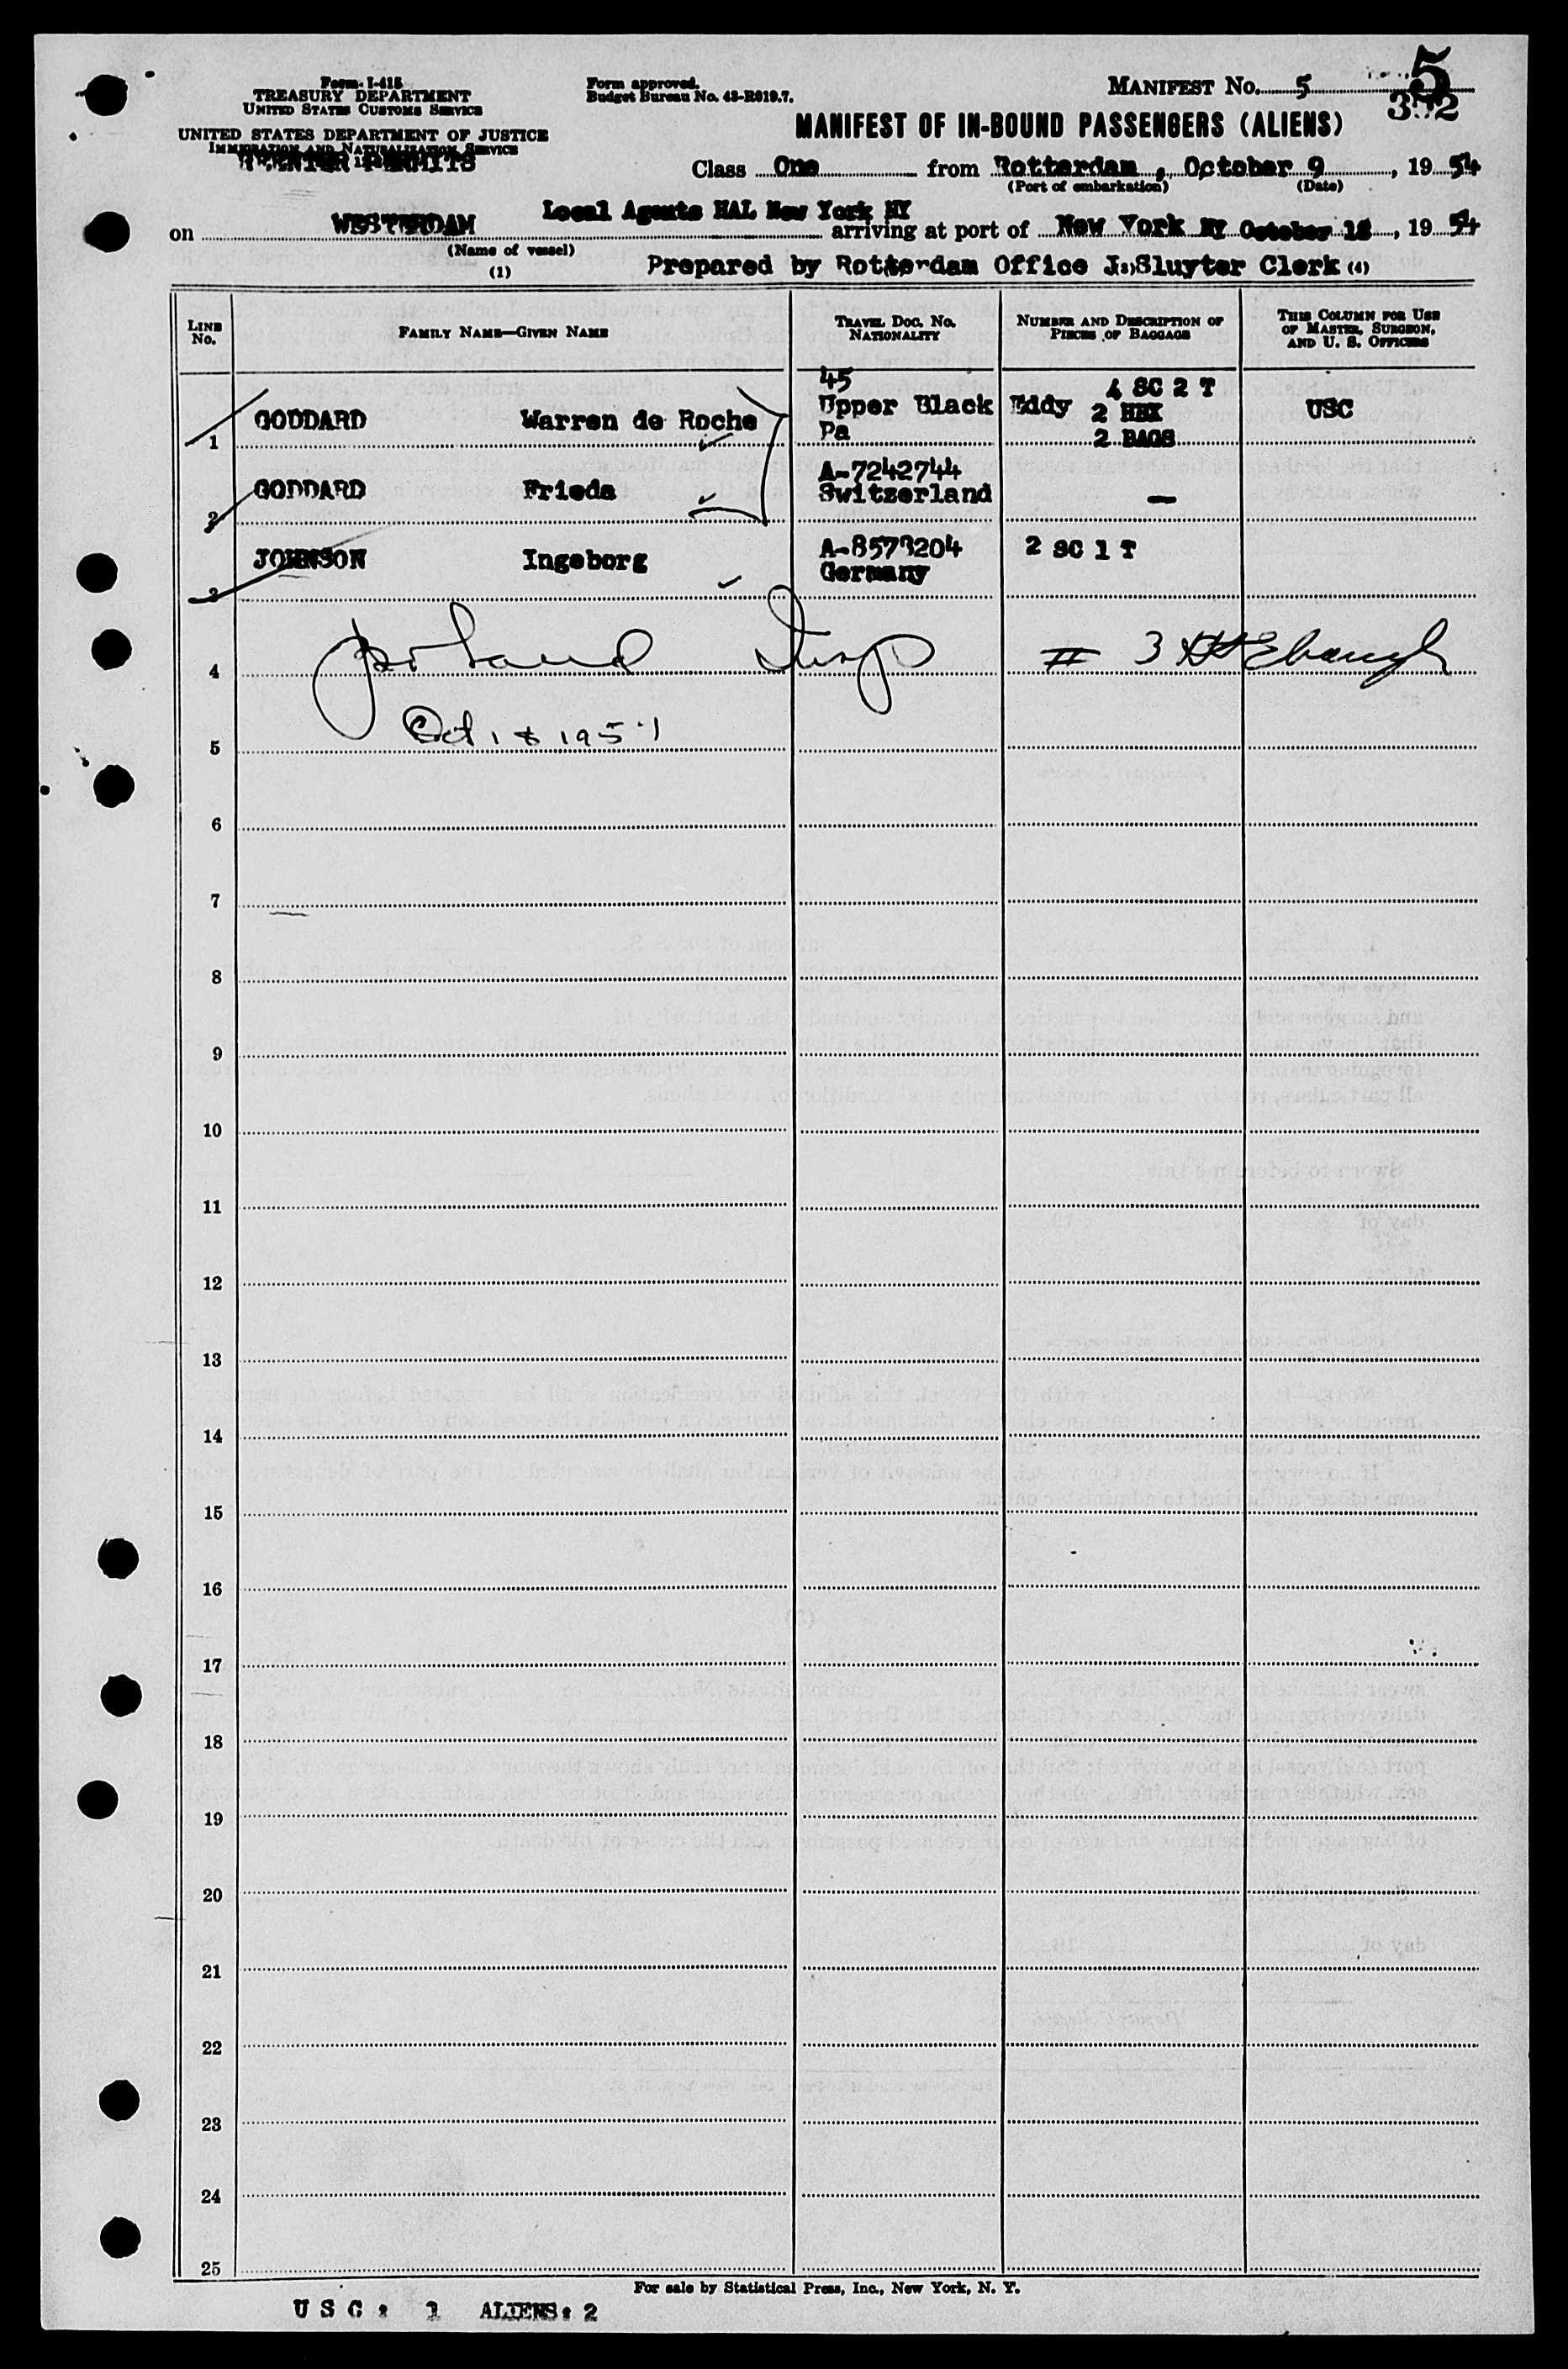 Form I-415
TREASURY DEPARTMENT
UNITED STATES CUSTOMS SERVICE
UNITED STATES DEPARTMENT OF JUSTICE
IMMIGRATION AND NATURALIZATION SERVICE
Form approved.
Budget Bureau No. 43-R019.7.
MANIFEST No. 5
5
MANIFEST OF IN-BOUND PASSENGERS (ALIENS)
Class One from Rotterdam, October 9, 1954
(Port of embarkation) (Date)
Local Agents HAL New York NY
on WESTERDAM arriving at port of New York NY October 18, 1954
(Name of vessel)
Prepared by Rotterdam Office J. Sluyter Clerk
(1) (3) (4)
LINE No. FAMILY NAME—GIVEN NAME TRAVEL DOC. No. NATIONALITY NUMBER AND DESCRIPTION OF PIECES OF BAGGAGE THIS COLUMN FOR USE OF MASTER, SURGEON, AND U. S. OFFICERS
45 4 SC 2 T
1 GODDARD Warren de Roche Upper Black Eddy 2 HBX USC
Pa 2 BAGS
A-7242744
2 GODDARD Frieda Switzerland —
3 JOHNSON Ingeborg A-8573204 2 SC 1 T
Germany
4 Insp # 3
5 Oct 18 1954
6
7
8
9
10
11
12
13
14
15
16
17
18
19
20
21
22
23
24
25
For sale by Statistical Press, Inc., New York, N. Y.
U S C : 1 ALIENS: 2